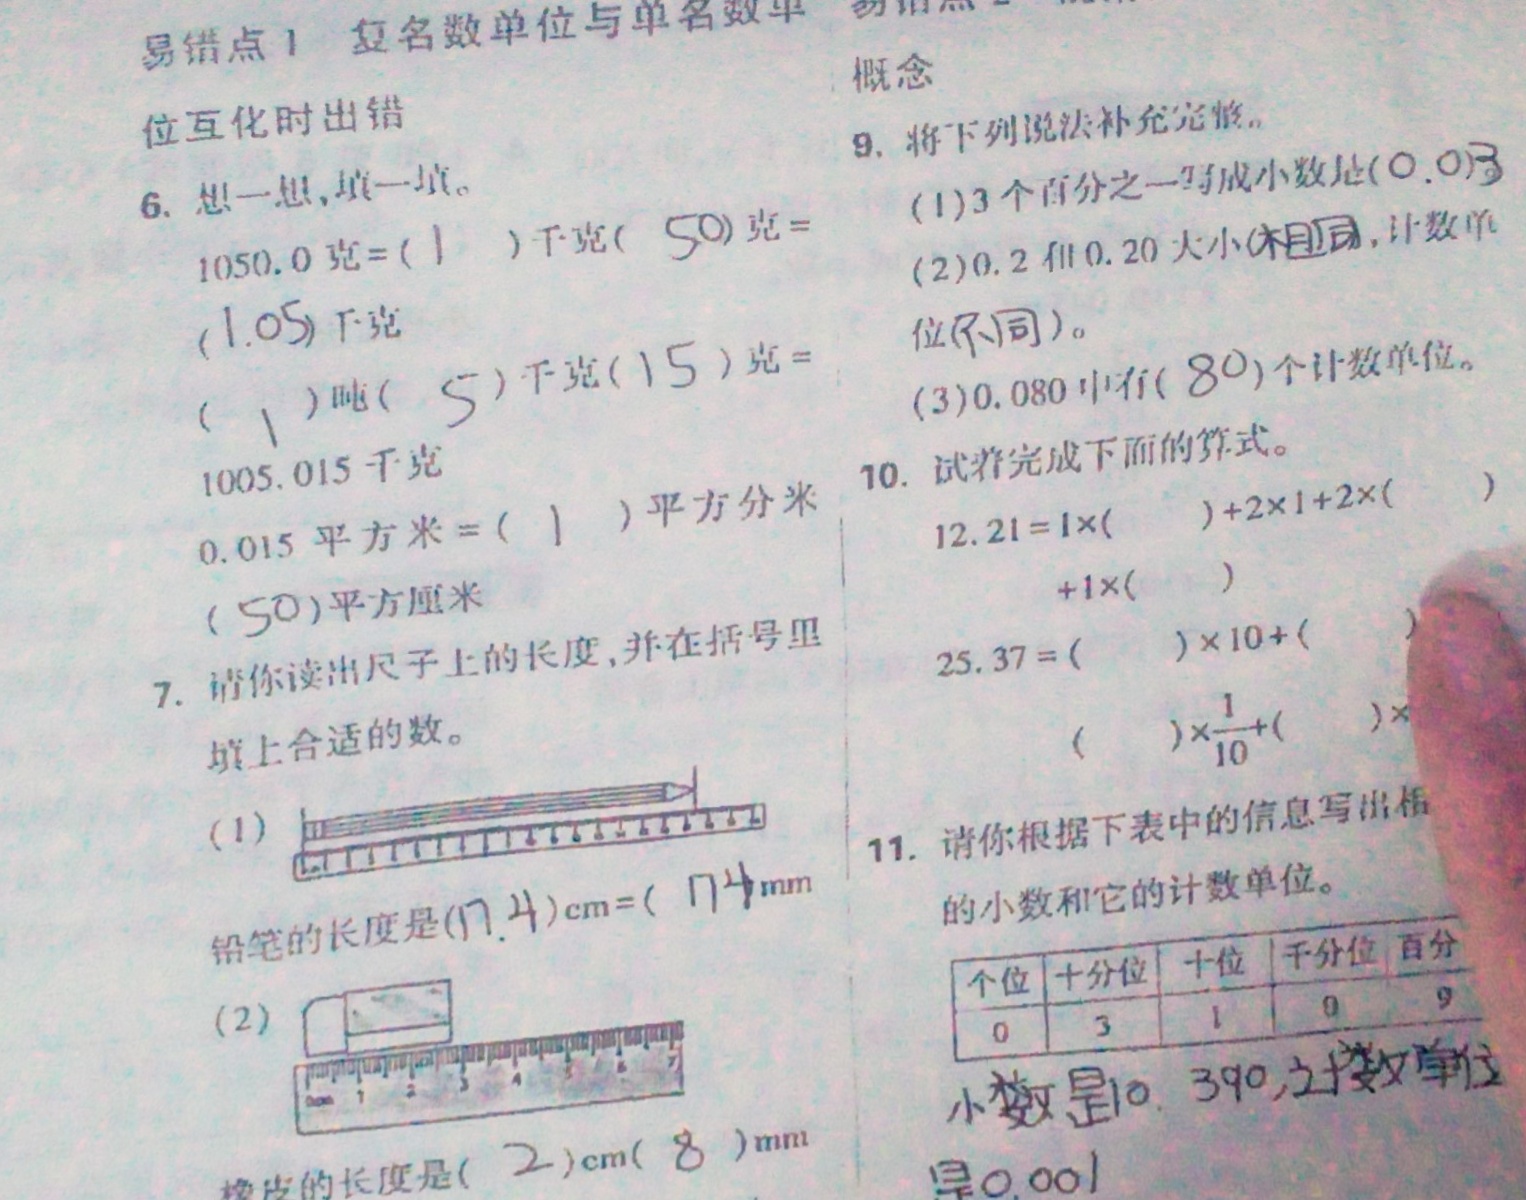 易错点1 复名数单位与单名数单
位互化时出错
6. 想一想,填一填。
1050.0克=( 1 )千克( 50)克=
(1.05)千克
( 1 )吨( 5 )千克(15 )克=
1005.015千克
0.015平方米=( 1 )平方分米
(50)平方厘米
7. 请你读出尺子上的长度,并在括号里
填上合适的数。
(1)
铅笔的长度是(17.4)cm=( 174mm
(2)
0cm 1 2 3 4 5 6 7
橡皮的长度是( 2 )cm( 8 )mm
概念
9. 将下列说法补充完整。
(1)3个百分之一写成小数是(0.0)3
(2)0.2和0.20大小(相同),计数单
位(不同)。
(3)0.080中有( 80)个计数单位。
10. 试着完成下面的算式。
12.21=1×( )+2×1+2×( )
+1×( )
25.37=( )×10+( )
( )×1/10+( )×
11. 请你根据下表中的信息写出相
的小数和它的计数单位。
个位 十分位 十位 千分位 百分
0 3 1 0 9
小数是10.390,计数单位
是0.001